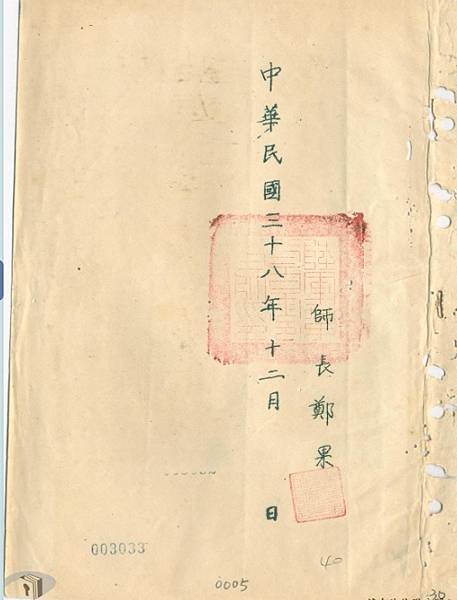 師長鄭果
中華民國三十八年十二月 日
003033
0005
40